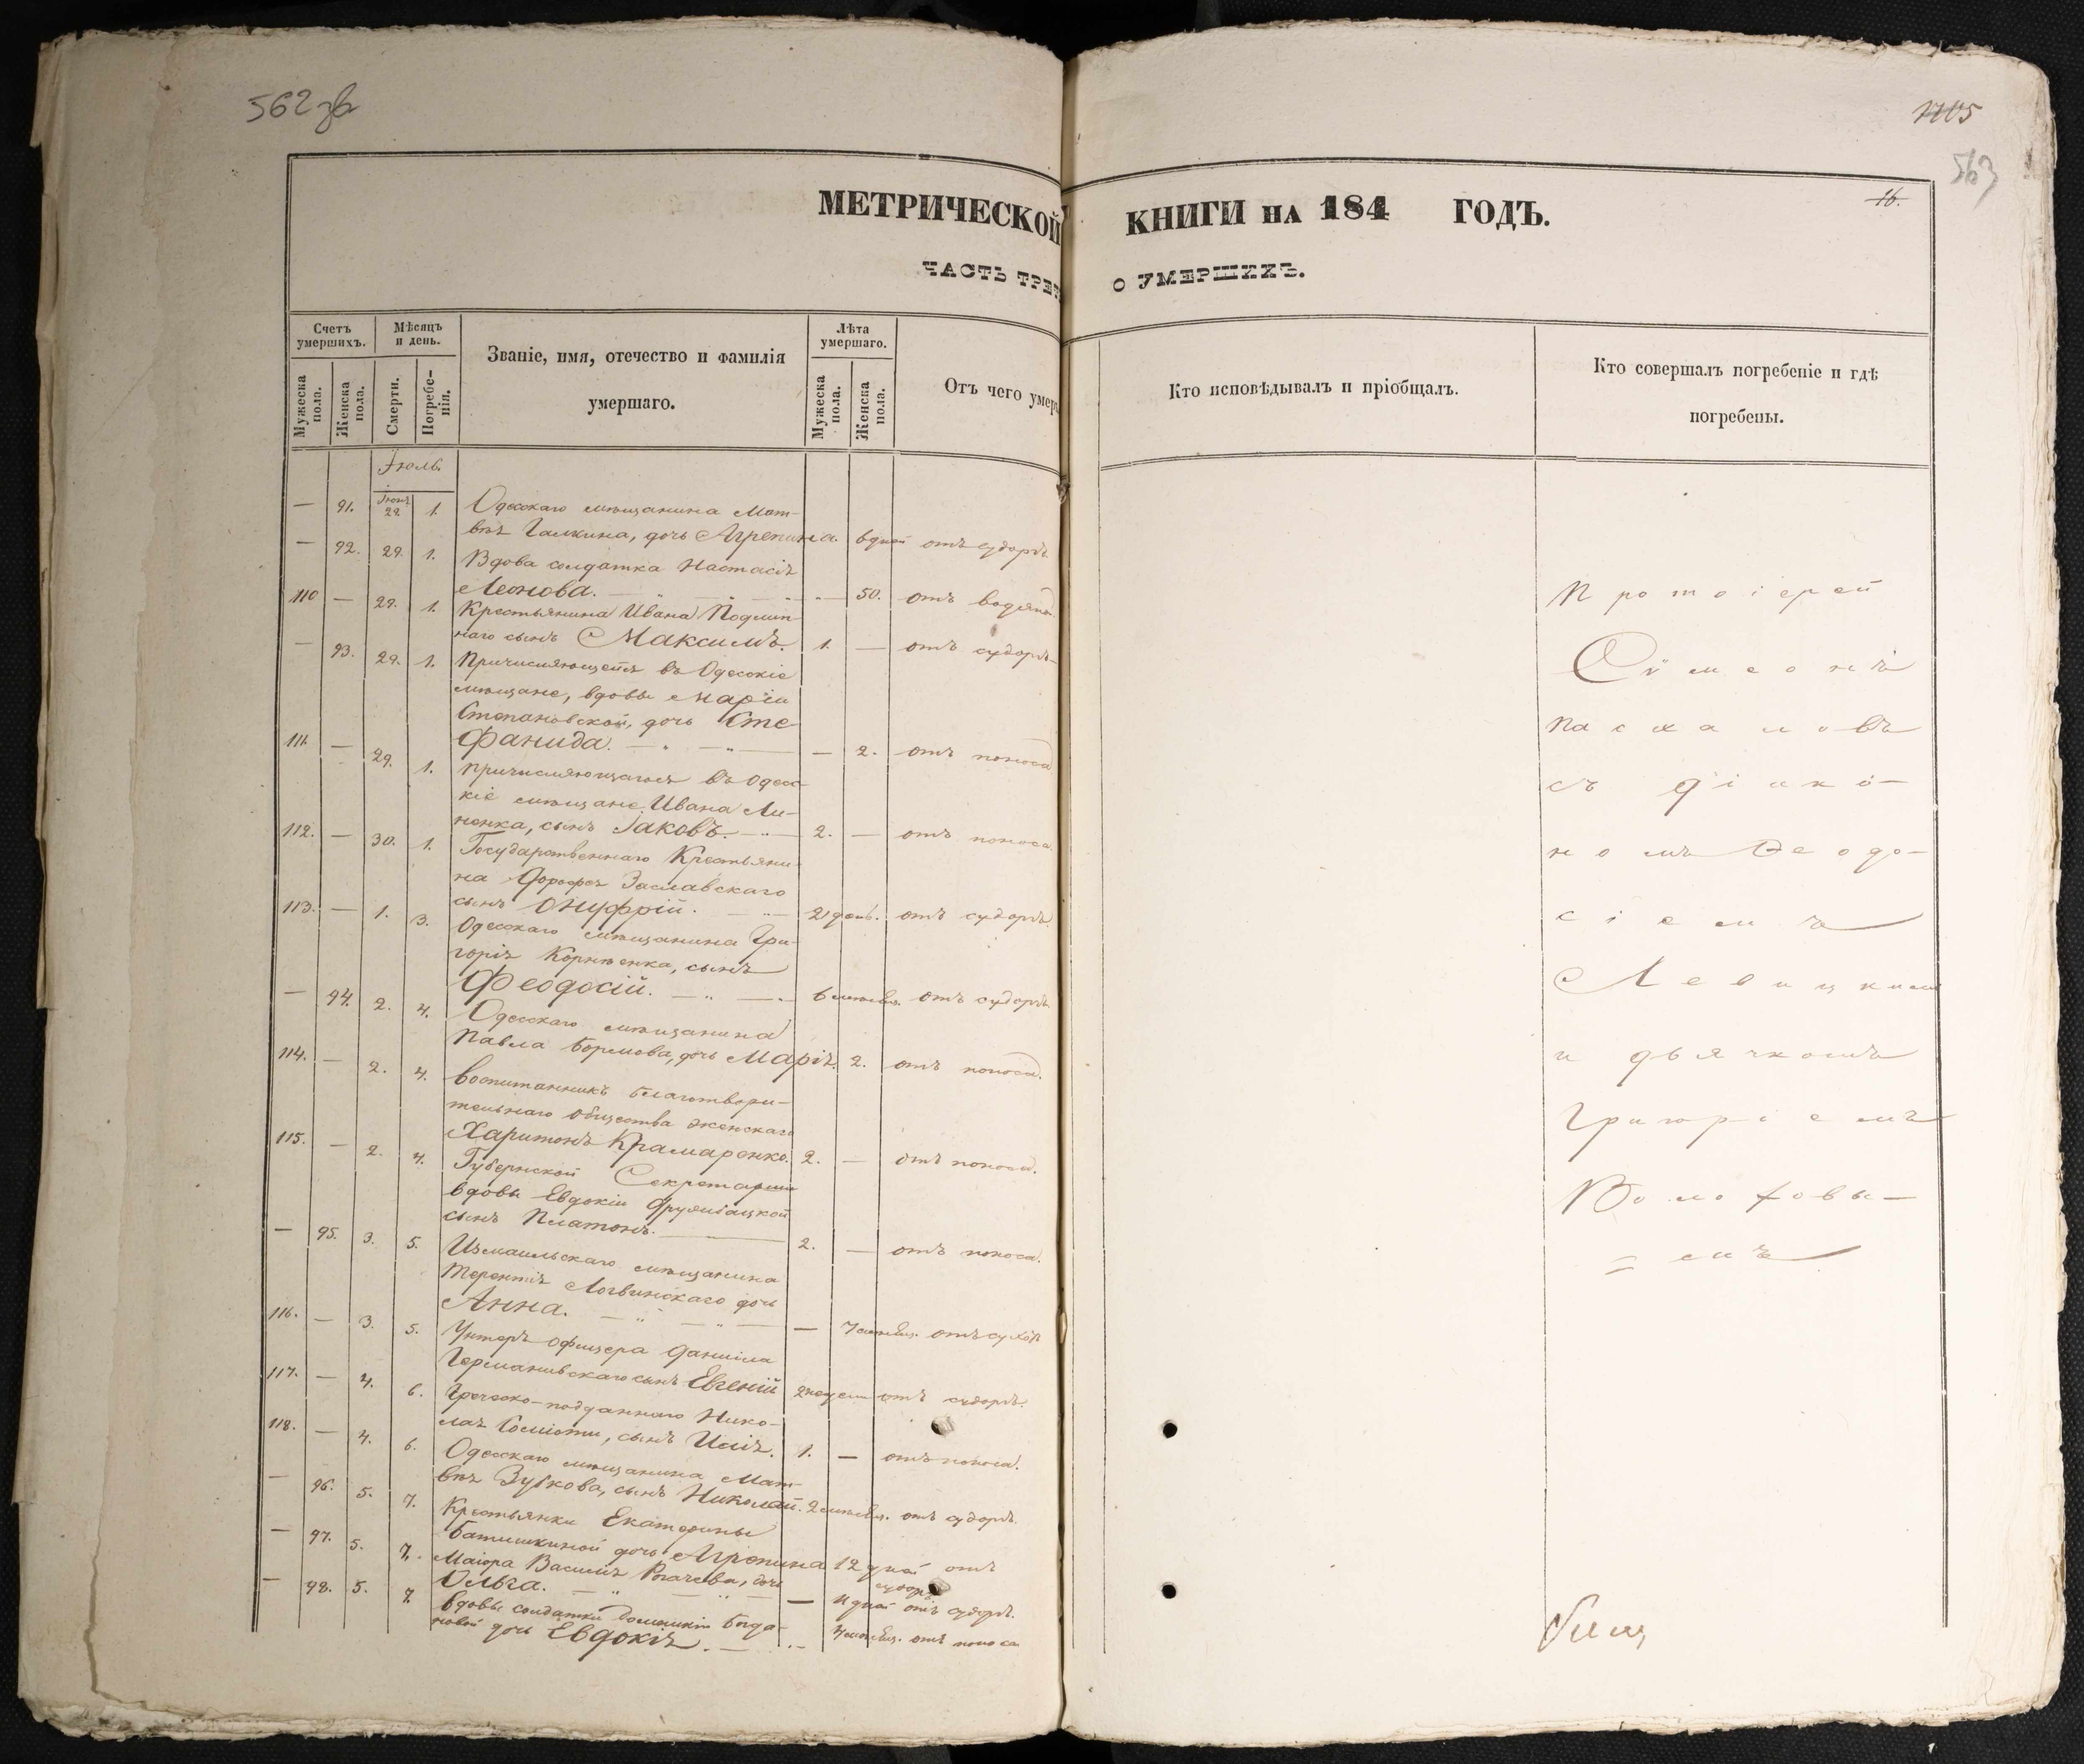 562 зв
1705
563
16.
МЕТРИЧЕСКОЙ КНИГИ НА 184 ГОДЪ.
ЧАСТЬ ТРЕТ О УМЕРШИХЪ.
Счетъ умершихъ.
Мѣсяцъ и день.
Званіе, имя, отечество и фамилія умершаго.
Лѣта умершаго.
Отъ чего умер
Кто исповѣдывалъ и пріобщалъ.
Кто совершалъ погребеніе и гдѣ погребены.
Мужеска пола.
Женска пола.
Смерти.
Погребенія.
Мужеска пола.
Женска пола.
Іюль.
— 91. Іюня 29. 1. Одесскаго мѣщанина Мат-
вѣя Галкина, дочь Агрепина. 6 дней отъ судорг.
— 92. 29. 1. Вдова солдатка Настасія
Леонова. — 50. отъ водяной
110 — 29. 1. Крестьянина Ивана Подлип-
наго сынъ Максимъ. 1. — отъ судорг.
— 93. 29. 1. Причисляющейся въ Одесскіе
мѣщане, вдовы Маріи
Степановской, дочь Сте-
фанида. — 2. отъ поноса
111. — 29. 1. Причисляющагося въ Одесс-
кіе мѣщане Ивана Ли-
ненка, сынъ Іаковъ. 2. — отъ поноса.
112. — 30. 1. Государственнаго Крестьяни-
на Дорофея Заславскаго
сынъ Онуфрій. 21 день. отъ судоргъ
113. — 1. 3. Одесскаго мѣщанина Гри-
горія Корнѣенка, сынъ
Феодосій. 6 мѣсяц. отъ судоргъ.
— 94. 2. 4. Одесскаго мѣщанина
Павла Бормова, дочь Марія. 2. отъ поноса.
114. — 2. 4. Воспитанникъ благотвори-
тельнаго общества женскаго
Харитонъ Крамаренко. 2. — отъ поноса.
115. — 2. 4. Губернской Секретарши
вдовы Евдокіи
сынъ Платонъ. 2. — отъ поноса.
— 95. 3. 5. Измаильскаго мѣщанина
Терентія Логвинскаго дочь
Анна. — 7 мѣсяц. отъ
116. — 3. 5. Унтеръ офицера Даніила
Германивскаго сынъ Евгеній 2 недели отъ судоргъ.
117. — 4. 6. Греческо-подданнаго Нико-
лая сынъ Илія. 1. — отъ поноса.
118. — 4. 6. Одесскаго мѣщанина Мат-
вѣя Зубкова, сынъ Николай. 2 мѣсяц. отъ судоргъ.
— 96. 5. 7. Крестьянки Екатерины
Батишкиной дочь Агрепина 12 дней отъ
судоргъ
— 97. 5. 7. Маіора Василія Рогачева, дочь
Ольга. — 11 дней отъ судоргъ.
— 98. 5. 7. Вдовы солдатки Домникіи Богда-
новой дочь Евдокія. 7 мѣсяц. отъ поноса
Протоіерей
Сѵмеонъ
Пасхаловъ
съ діако-
номъ Ѳеодо-
сіемъ
Левицкимъ
и дьячкомъ
Григоріемъ
Воло
емъ